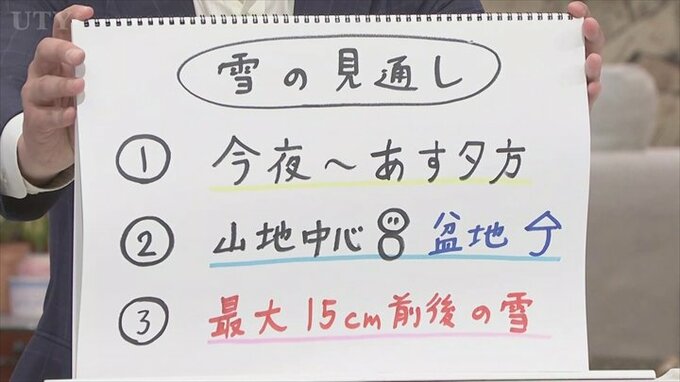 UTY
雪の見通し
① 今夜～あす夕方
② 山地中心 盆地
③ 最大15cm前後の雪